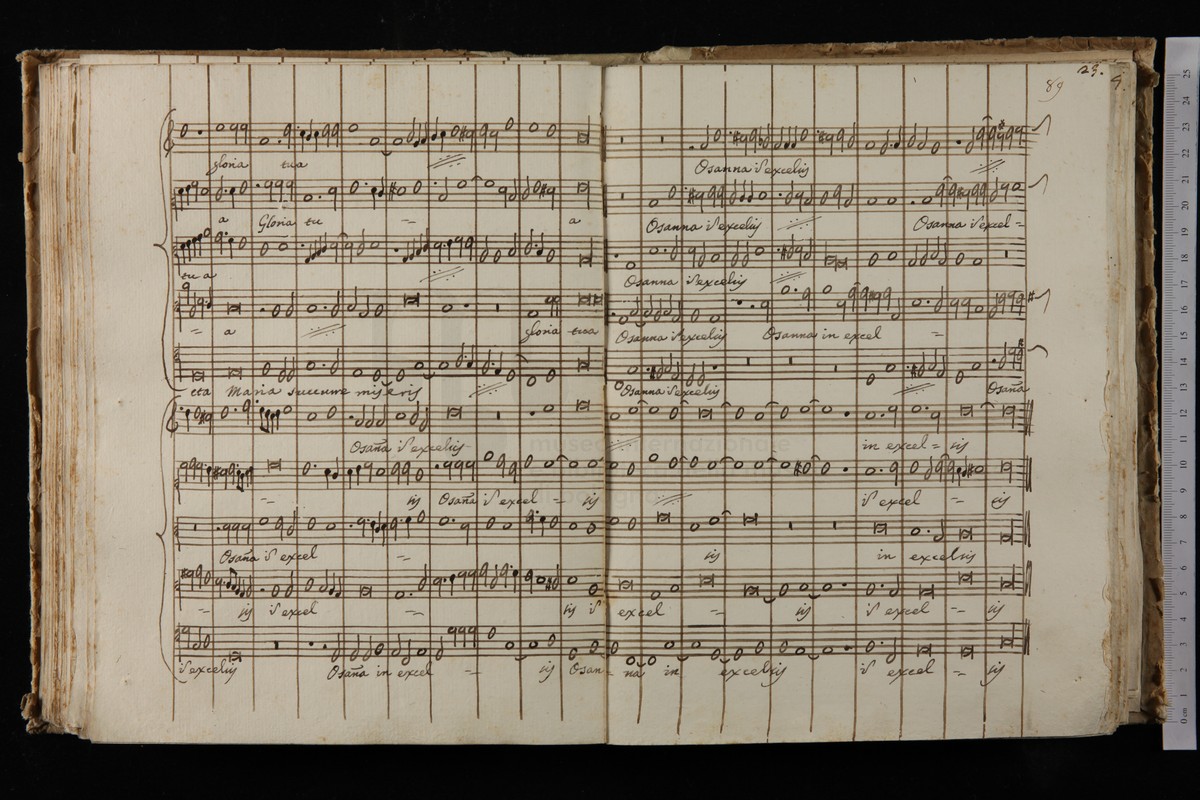 29.
89
gloria tua
Osanna i excelsis
a Gloria tu = a
Osanna i excelsis Osanna i excel =
tu a
Osanna i excelsis
= a gloria tua
Osanna i excelsis Osanna in excel =
cta Maria succurre miseris
Osanna i excelsis Osaña
Osaña i excelsis
in excel = sis
= sis Osaña i excel = sis
i excel = sis
Osaña i excel =
sis in excelsis
= sis i excel = sis i
excel = sis i excel = sis
i excelsis Osaña in excel = sis Osan =
na in excelsis i excel = sis
museo internazionale